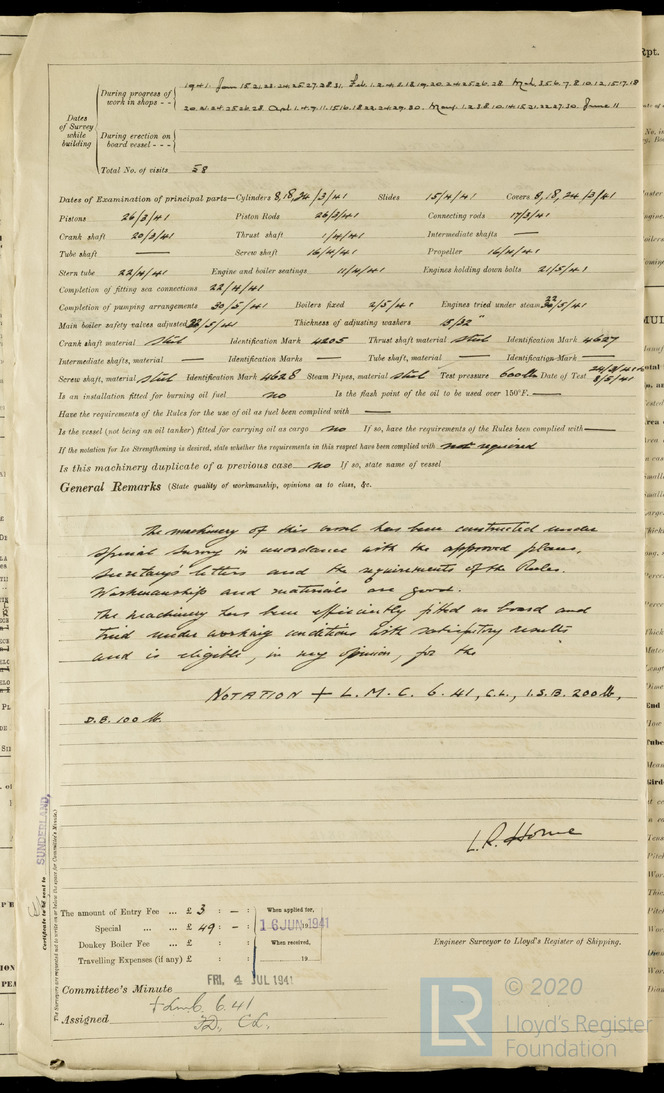 Dates of Survey while building
During progress of work in shops - -
1941. Jan 15.21.22.24.25.27.28.31. Feb. 1.2.4.5.18.19.20.24.25.26.28. Mch. 3.5.6.7.8.10.12.15.17.18
20.21.24.25.26.28. April. 1.4.9.11.15.16.18.22.24.29.30. May. 1.2.8.10.14.15.21.22.27.30. June 11
During erection on board vessel - - -
Total No. of visits 58
Dates of Examination of principal parts—Cylinders 8,18,24/3/41 Slides 15/4/41 Covers 8,18,24/3/41
Pistons 26/3/41 Piston Rods 26/3/41 Connecting rods 17/3/41
Crank shaft 20/3/41 Thrust shaft 1/4/41 Intermediate shafts —
Tube shaft — Screw shaft 16/4/41 Propeller 16/4/41
Stern tube 22/4/41 Engine and boiler seatings 11/4/41 Engines holding down bolts 21/5/41
Completion of fitting sea connections 22/4/41
Completion of pumping arrangements 30/5/41 Boilers fixed 2/5/41 Engines tried under steam 22/5/41
Main boiler safety valves adjusted 22/5/41 Thickness of adjusting washers 15/32"
Crank shaft material steel Identification Mark 4205 Thrust shaft material steel Identification Mark 4627
Intermediate shafts, material — Identification Marks — Tube shaft, material — Identification Mark —
Screw shaft, material steel Identification Mark 4628 Steam Pipes, material steel Test pressure 600 lb Date of Test 8/5/41
Is an installation fitted for burning oil fuel no Is the flash point of the oil to be used over 150°F. —
Have the requirements of the Rules for the use of oil as fuel been complied with —
Is the vessel (not being an oil tanker) fitted for carrying oil as cargo no If so, have the requirements of the Rules been complied with —
If the notation for Ice Strengthening is desired, state whether the requirements in this respect have been complied with not required
Is this machinery duplicate of a previous case no If so, state name of vessel
General Remarks (State quality of workmanship, opinions as to class, &c.
The machinery of this vessel has been constructed under
special survey in accordance with the approved plans,
Secretary's letters and the requirements of the Rules.
Workmanship and materials are good.
The machinery has been efficiently fitted on board and
tried under working conditions with satisfactory results
and is eligible, in my opinion, for the
NOTATION + L.M.C. 6.41, C.L., I.S.B. 200 lb,
D.B. 100 lb.
L.R. Horne
Engineer Surveyor to Lloyd's Register of Shipping.
SUNDERLAND.
Certificate to be sent to
The Surveyors are requested not to write on or below the space for Committee's Minute.
The amount of Entry Fee ... £ 3 : - :
Special ... ... £ 49 : - :
Donkey Boiler Fee ... £ : :
Travelling Expenses (if any) £ : :
When applied for,
16 JUN 1941
When received,
19
Committee's Minute FRI. 4 JUL 1941
Assigned + Lmc 6.41
FD, CL.
© 2020
Lloyd's Register
Foundation
LR